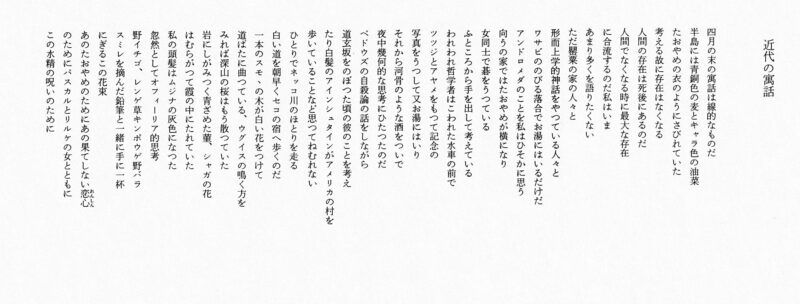 近代の寓話
四月の末の寓話は線的なものだ
半島には青銅色の麦とキャラ色の油菜
たおやめの衣のようにさびれていた
考える故に存在はなくなる
人間の存在は死後にあるのだ
人間でなくなる時に最大な存在
に合流するのだ私はいま
あまり多くを語りたくない
ただ罌粟の家の人々と
形而上学的神話をやっている人々と
ワサビののびる落合でお湯にはいるだけだ
アンドロメダのことを私はひそかに思う
向うの家ではたおやめが横になり
女同士で碁をうっている
ふところから手を出して考えている
われわれ哲学者はこわれた水車の前で
ツツジとアヤメをもって記念の
写真をうつして又お湯にはいり
それから河骨のような酒をついで
夜中幾何的な思考にひたったのだ
ベドウズの自殺論の話をしながら
道玄坂をのぼった頃の彼のことを考え
たり白髪のアインシュタインがアメリカの村を
歩いていることなど思ってねむれない
ひとりでネッコ川のほとりを走る
白い道を朝早くセコの宿へ歩くのだ
一本のスモヽの木が白い花をつけて
道ばたに曲っている、ウグイスの鳴く方を
みれば深山の桜はもう散っていた
岩にしがみつく青ざめた菫、シャガの花
はむらがって霞の中にたれていた
私の頭髪はムジナの灰色になった
忽然としてオフィーリア的思考
野イチゴ、レンゲ草キンポウゲ野バラ
スミレを摘んだ鉛筆と一緒に手に一杯
にぎるこの花束
あのたおやめのためにあの果てしない恋心
のためにパスカルとリルケの女とともに
この水精の呪いのために